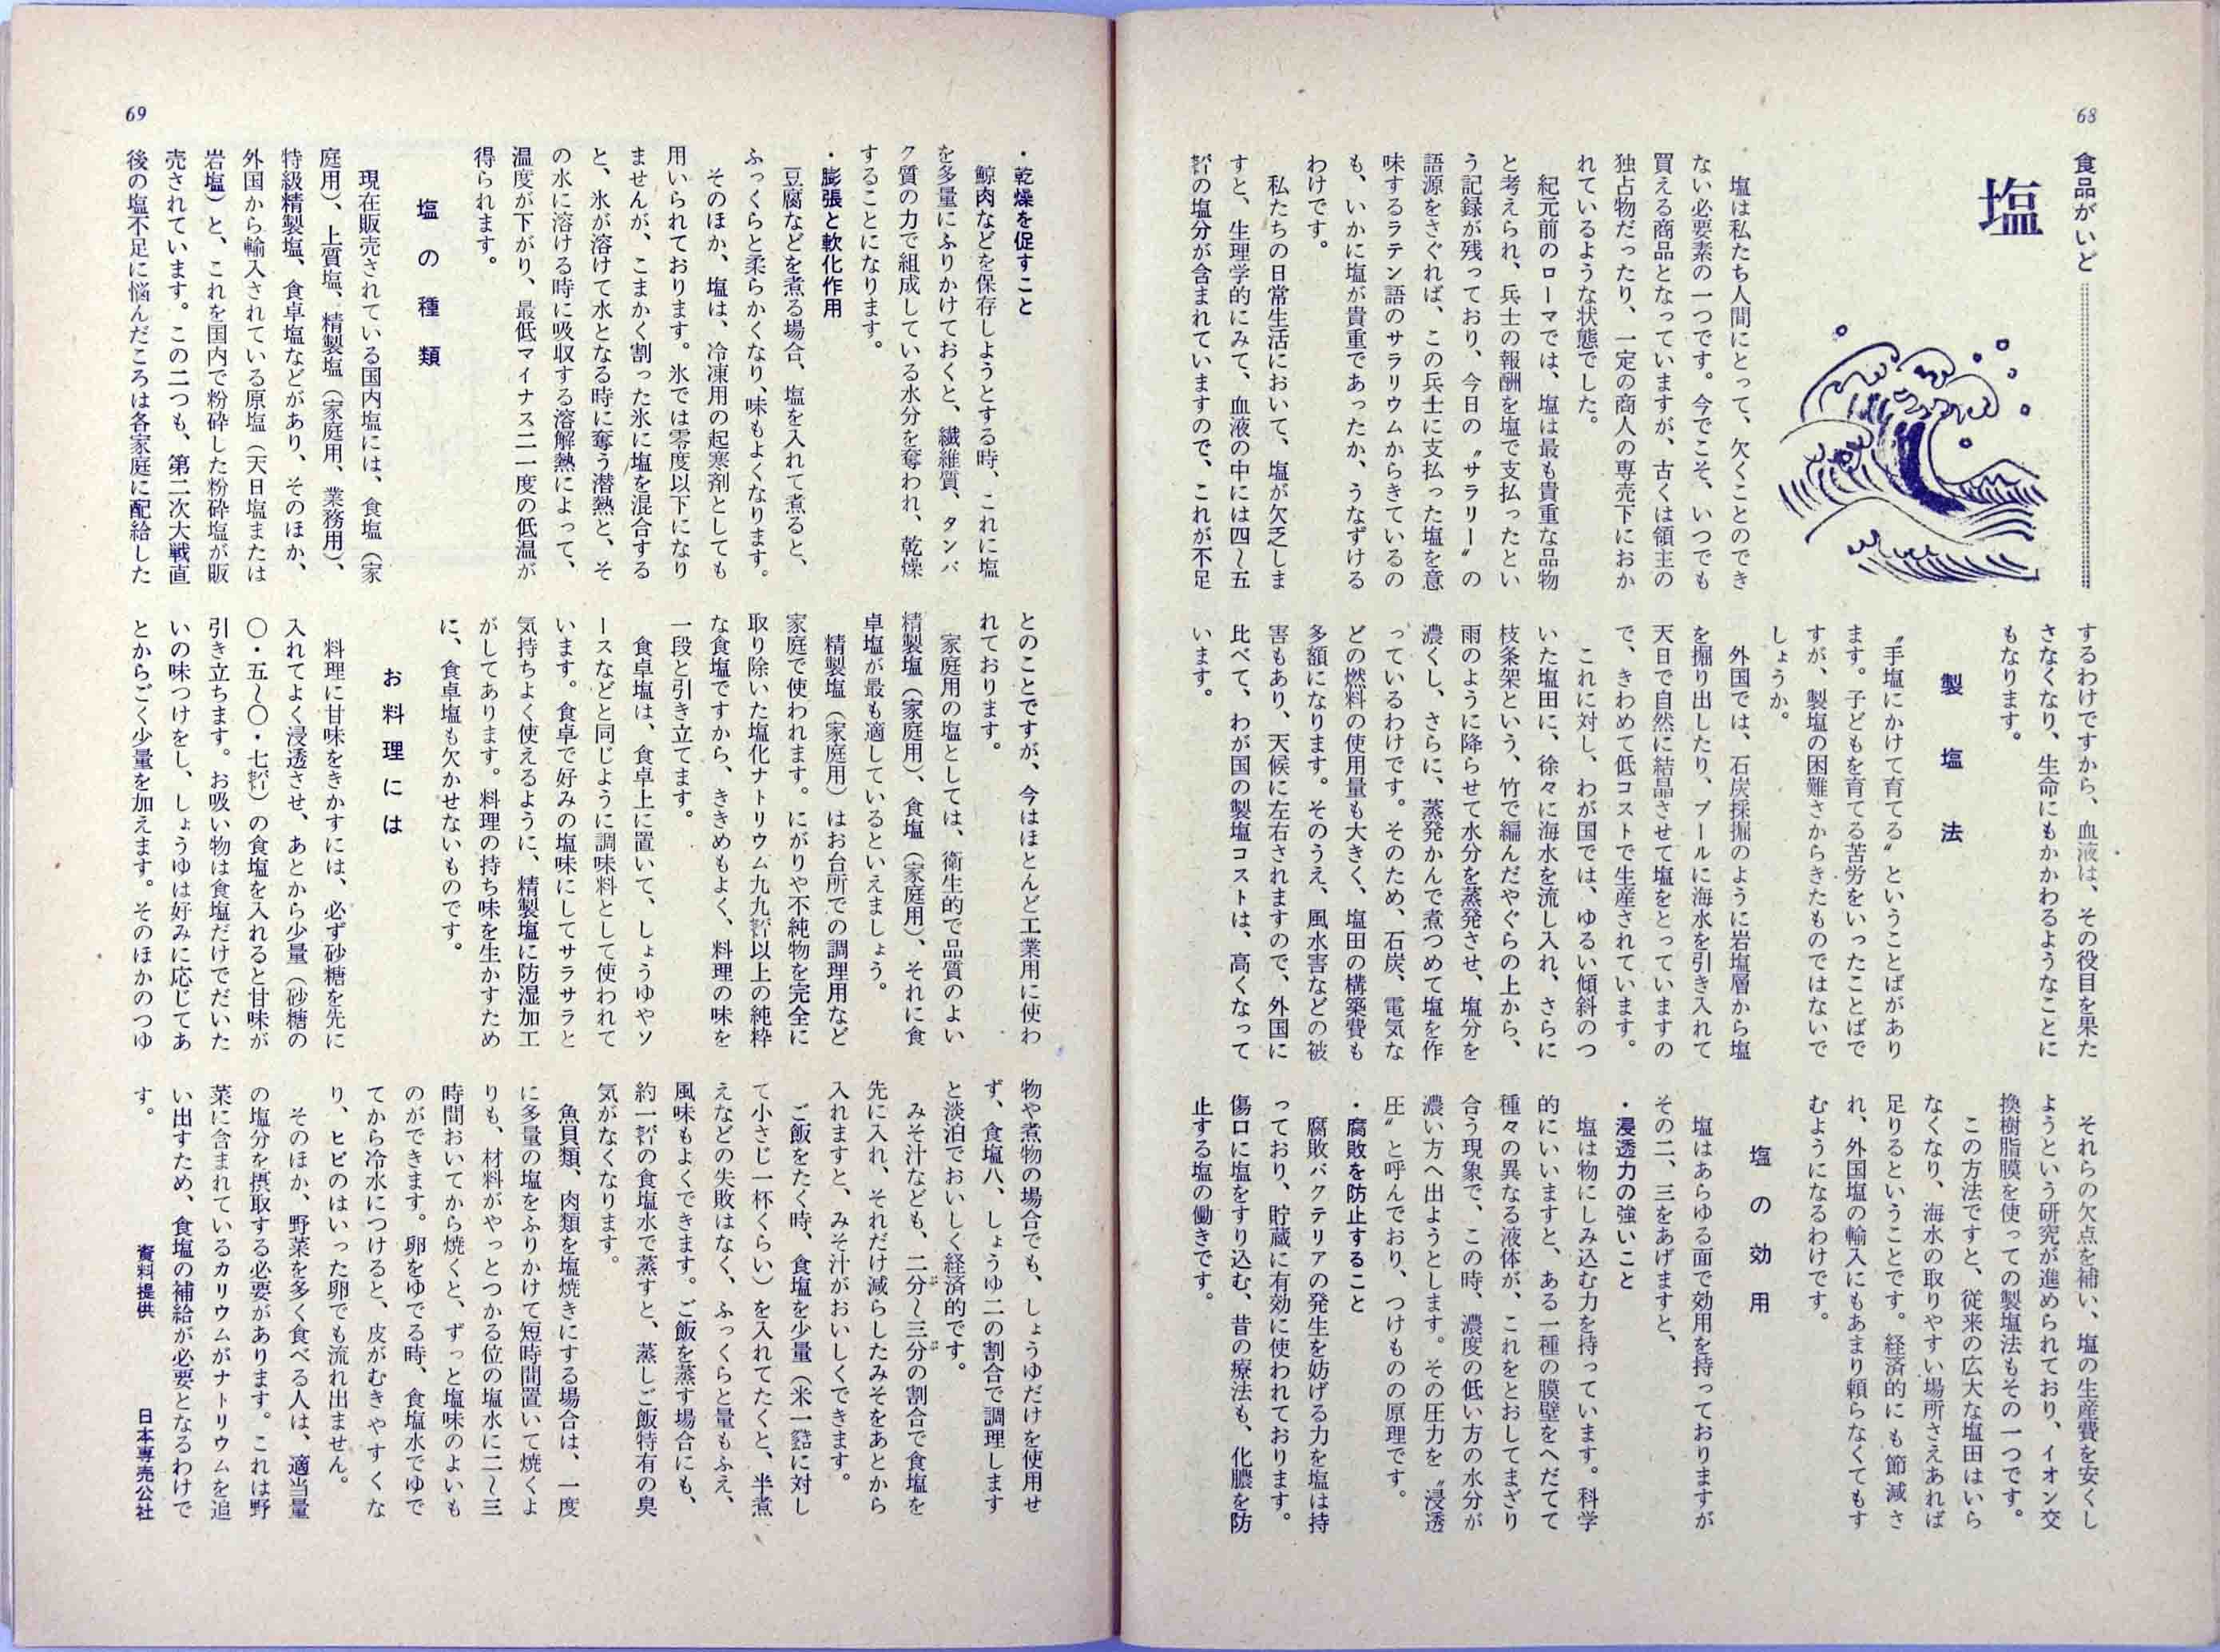 68
食品がいど
塩
塩は私たち人間にとって、欠くことのでき
ない必要素の一つです。今でこそ、いつでも
買える商品となっていますが、古くは領主の
独占物だったり、一定の商人の専売下におか
れているような状態でした。
紀元前のローマでは、塩は最も貴重な品物
と考えられ、兵士の報酬を塩で支払ったとい
う記録が残っており、今日の〝サラリー〟の
語源をさぐれば、この兵士に支払った塩を意
味するラテン語のサラリウムからきているの
も、いかに塩が貴重であったか、うなずける
わけです。
私たちの日常生活において、塩が欠乏しま
すと、生理学的にみて、血液の中には四〜五
㌫の塩分が含まれていますので、これが不足
するわけですから、血液は、その役目を果た
さなくなり、生命にもかかわるようなことに
もなります。
製塩法
〝手塩にかけて育てる〟ということばがあり
ます。子どもを育てる苦労をいったことばで
すが、製塩の困難さからきたものではないで
しょうか。
外国では、石炭採掘のように岩塩層から塩
を掘り出したり、プールに海水を引き入れて
天日で自然に結晶させて塩をとっていますの
で、きわめて低コストで生産されています。
これに対し、わが国では、ゆるい傾斜のつ
いた塩田に、徐々に海水を流し入れ、さらに
枝条架という、竹で編んだやぐらの上から、
雨のように降らせて水分を蒸発させ、塩分を
濃くし、さらに、蒸発かんで煮つめて塩を作
っているわけです。そのため、石炭、電気な
どの燃料の使用量も大きく、塩田の構築費も
多額になります。そのうえ、風水害などの被
害もあり、天候に左右されますので、外国に
比べて、わが国の製塩コストは、高くなって
います。
それらの欠点を補い、塩の生産費を安くし
ようという研究が進められており、イオン交
換樹脂膜を使っての製塩法もその一つです。
この方法ですと、従来の広大な塩田はいら
なくなり、海水の取りやすい場所さえあれば
足りるということです。経済的にも節減さ
れ、外国塩の輸入にもあまり頼らなくてもす
むようになるわけです。
塩の効用
塩はあらゆる面で効用を持っておりますが
その二、三をあげますと、
・浸透力の強いこと
塩は物にしみ込む力を持っています。科学
的にいいますと、ある一種の膜壁をへだてて
種々の異なる液体が、これをとおしてまざり
合う現象で、この時、濃度の低い方の水分が
濃い方へ出ようとします。その圧力を〝浸透
圧〟と呼んでおり、つけものの原理です。
・腐敗を防止すること
腐敗バクテリアの発生を妨げる力を塩は持
っており、貯蔵に有効に使われております。
傷口に塩をすり込む、昔の療法も、化膿を防
止する塩の働きです。
・乾燥を促すこと
鯨肉などを保存しようとする時、これに塩
を多量にふりかけておくと、繊維質、タンパ
ク質の力で組成している水分を奪われ、乾燥
することになります。
・膨張と軟化作用
豆腐などを煮る場合、塩を入れて煮ると、
ふっくらと柔らかくなり、味もよくなります。
そのほか、塩は、冷凍用の起寒剤としても
用いられております。氷では零度以下になり
ませんが、こまかく割った氷に塩を混合する
と、氷が溶けて水となる時に奪う潜熱と、そ
の水に溶ける時に吸収する溶解熱によって、
温度が下がり、最低マイナス二一度の低温が
得られます。
塩の種類
現在販売されている国内塩には、食塩（家
庭用）、上質塩、精製塩（家庭用、業務用）、
特級精製塩、食卓塩などがあり、そのほか、
外国から輸入されている原塩（天日塩または
岩塩）と、これを国内で粉砕した粉砕塩が販
売されています。この二つも、第二次大戦直
後の塩不足に悩んだころは各家庭に配給した
とのことですが、今はほとんど工業用に使わ
れております。
家庭用の塩としては、衛生的で品質のよい
精製塩（家庭用）、食塩（家庭用）、それに食
卓塩が最も適しているといえましょう。
精製塩（家庭用）はお台所での調理用など
家庭で使われます。にがりや不純物を完全に
取り除いた塩化ナトリウム九九㌫以上の純粋
な食塩ですから、ききめもよく、料理の味を
一段と引き立てます。
食卓塩は、食卓上に置いて、しょうゆやソ
ースなどと同じように調味料として使われて
います。食卓で好みの塩味にしてサラサラと
気持ちよく使えるように、精製塩に防湿加工
がしてあります。料理の持ち味を生かすため
に、食卓塩も欠かせないものです。
お料理には
料理に甘味をきかすには、必ず砂糖を先に
入れてよく浸透させ、あとから少量（砂糖の
〇・五〜〇・七㌫）の食塩を入れると甘味が
引き立ちます。お吸い物は食塩だけでだいた
いの味つけをし、しょうゆは好みに応じてあ
とからごく少量を加えます。そのほかのつゆ
物や煮物の場合でも、しょうゆだけを使用せ
ず、食塩八、しょうゆ二の割合で調理します
と淡泊でおいしく経済的です。
みそ汁なども、二分〜三分の割合で食塩を
先に入れ、それだけ減らしたみそをあとから
入れますと、みそ汁がおいしくできます。
ご飯をたく時、食塩を少量（米一㌔に対し
て小さじ一杯くらい）を入れてたくと、半煮
えなどの失敗はなく、ふっくらと量もふえ、
風味もよくできます。ご飯を蒸す場合にも、
約一㌫の食塩水で蒸すと、蒸しご飯特有の臭
気がなくなります。
魚貝類、肉類を塩焼きにする場合は、一度
に多量の塩をふりかけて短時間置いて焼くよ
りも、材料がやっとつかる位の塩水に二〜三
時間おいてから焼くと、ずっと塩味のよいも
のができます。卵をゆでる時、食塩水でゆで
てから冷水につけると、皮がむきやすくな
り、ヒビのはいった卵でも流れ出ません。
そのほか、野菜を多く食べる人は、適当量
の塩分を摂取する必要があります。これは野
菜に含まれているカリウムがナトリウムを追
い出すため、食塩の補給が必要となるわけで
す。
資料提供 日本専売公社
69